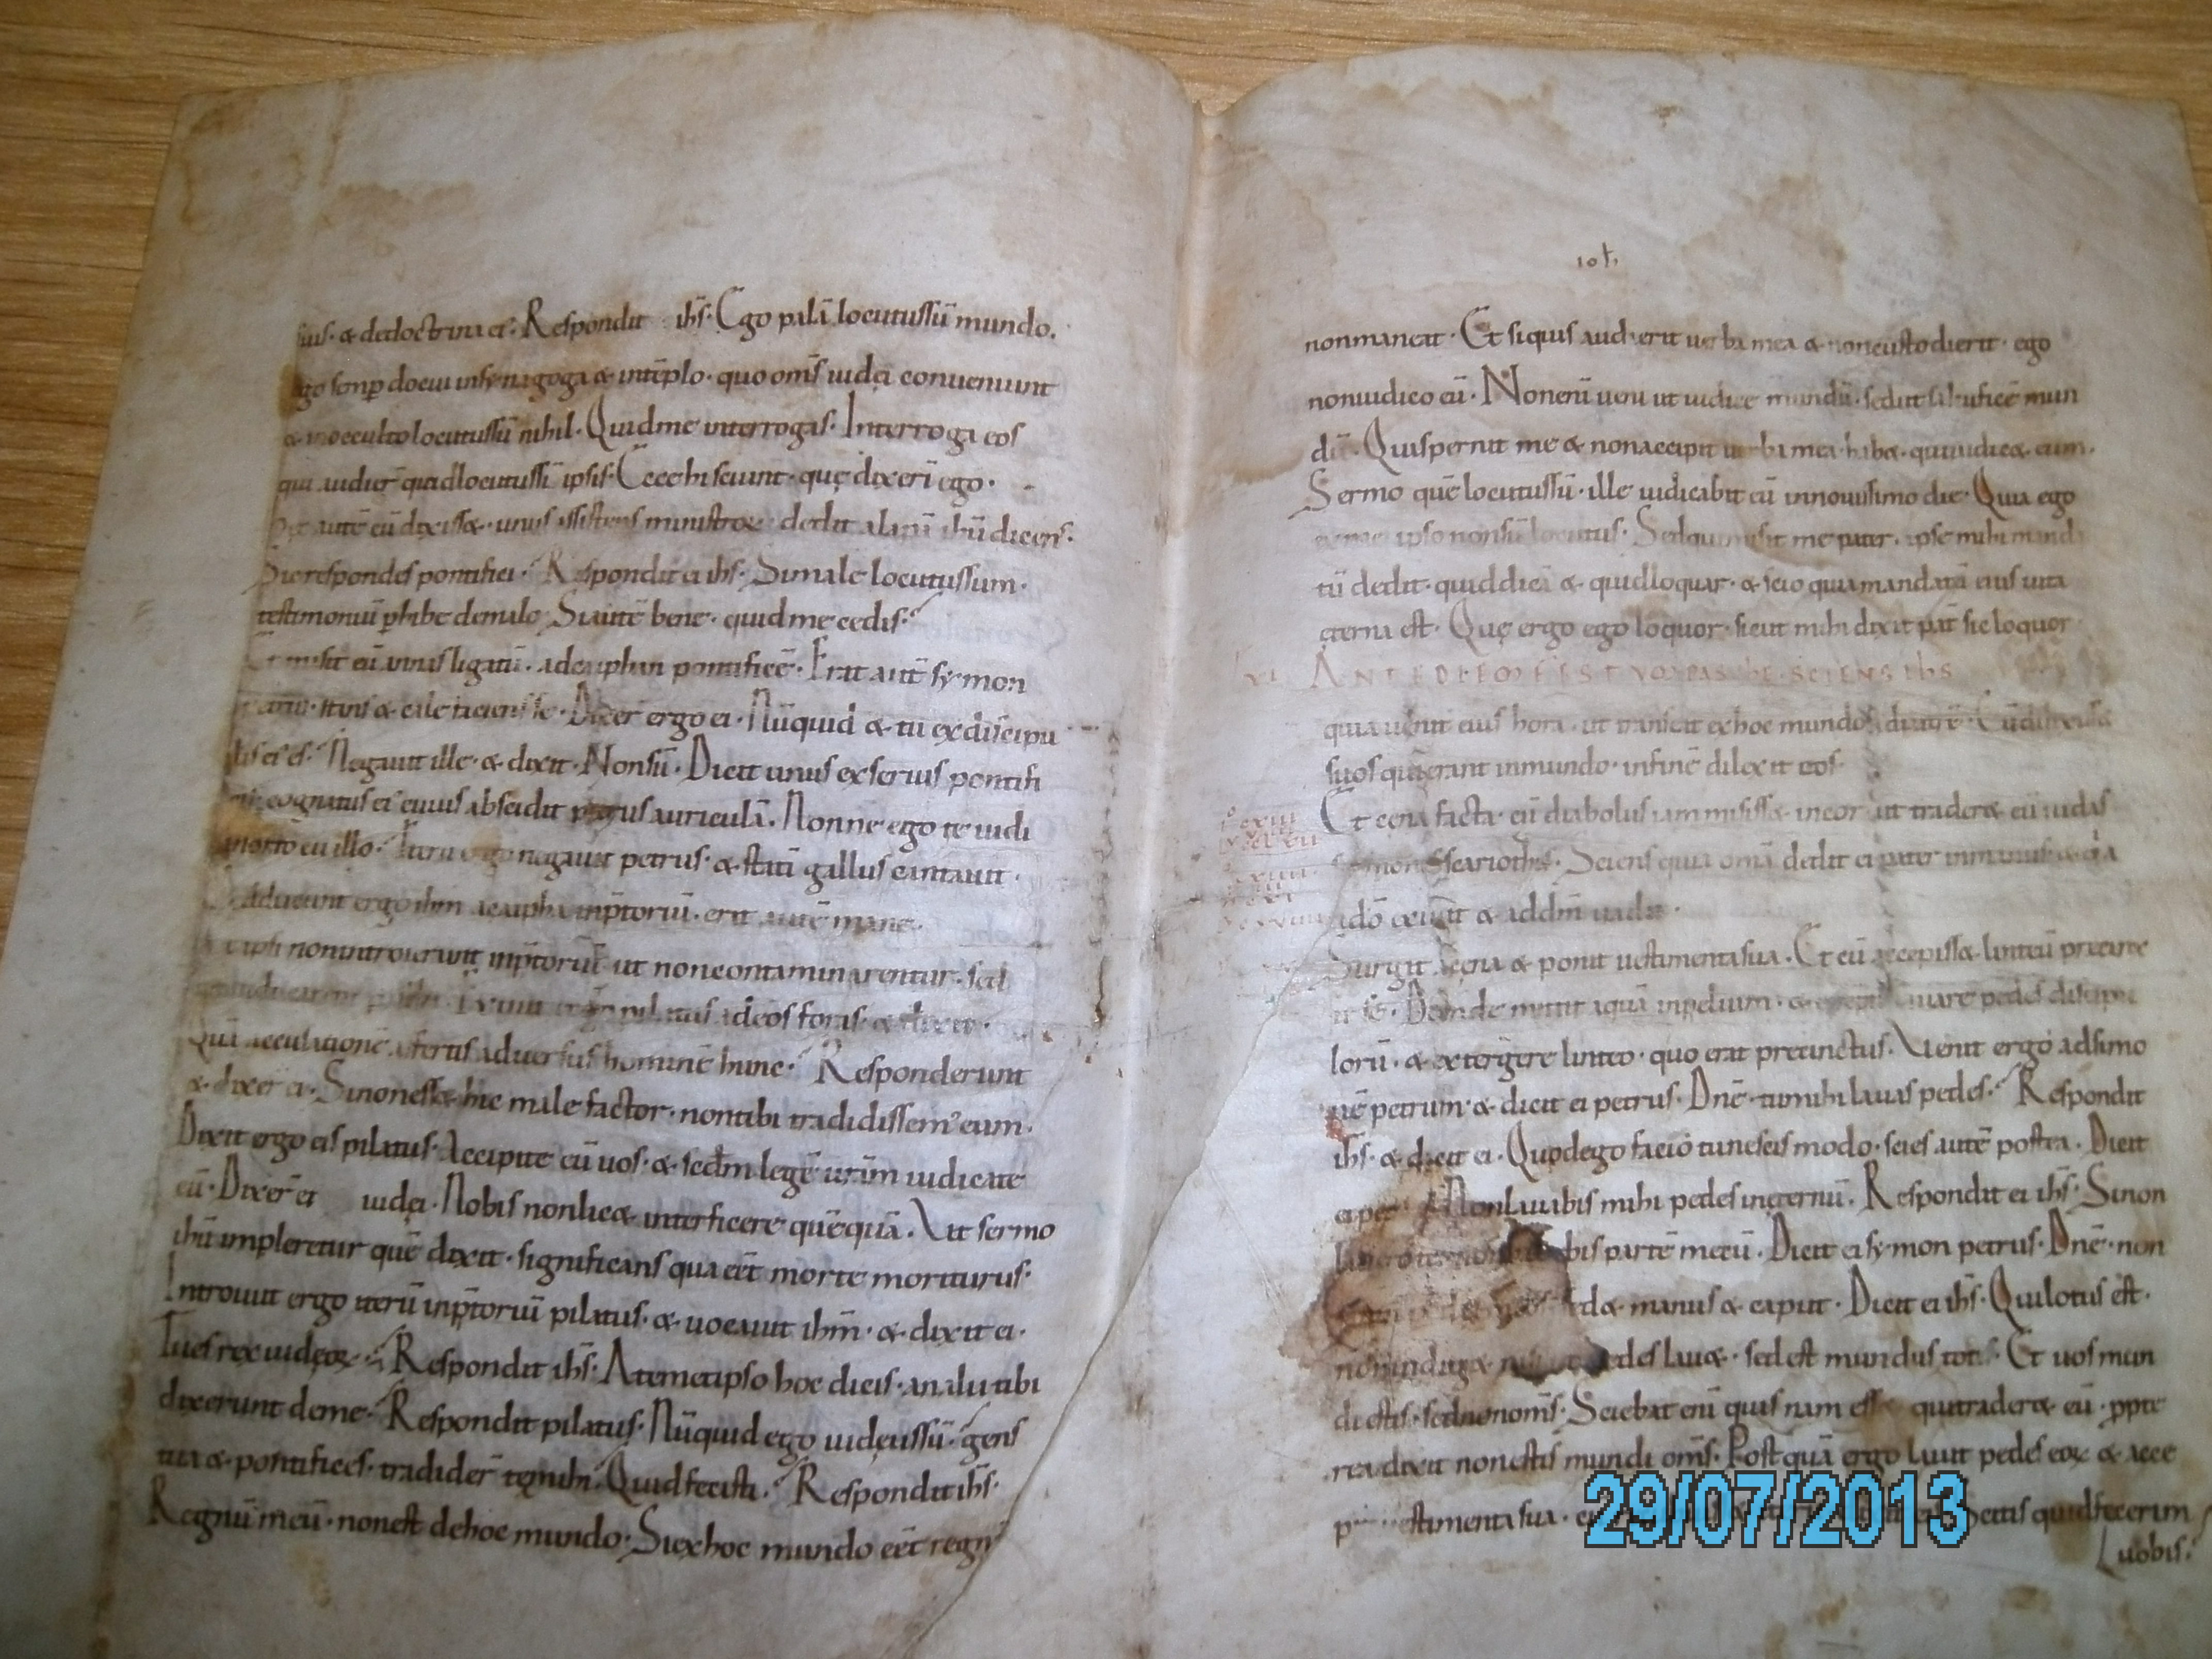 suis · & dedoctrina ei · Respondit ihs̄ · Ego palā locutussū mundo.
ego semp̱ docui insynagoga & intēplo · quo om̄s iudęi conueniunt
& inocculto locutussū nihil · Quidme interrogas · Interroga eos
qui audier̄ quidlocutussū ipsis · Ecce hi sciunt · quę dixerī ego ·
autē eū dixiss& · unus assistens ministroꝝ dedit alapā ihū dicens ·
Sicrespondes pontifici · Respondit ei ihs̄ · Simale locutussum ·
testimoniū ꝑhibe demalo Siautē bene · quid me cedis ·
Et misit eū annas ligatū · adcaiphan pontificē · Erat aut̄ symon
stans & calefaciens se · Dixer̄ ergo ei · Nūquid & tu exdiscipu
lis ei es · Negauit ille · & dixit · Nonsū · Dicit unus exseruis pontifi
cognatus ei cuius abscidit petrus auriculā · Nonne ego te uidi
inorto cū illo · Iterū ergo negauit petrus · & statī gallus cantauit ·
Adducunt ergo ihm̄ acaipha inp̄toriū · erat autē mane ·
ipsi nonintroierunt inp̄toriū ut noncontaminarentur · sed
Exiuit ergo pilatus adeos foras · & dixit ·
Quā accusationē afertis aduersus hominē hunc · Responderunt
& dixer̄ ei · Sinoness& hic malefactor · nontibi tradidissem' eum ·
Dixit ergo eis pilatus · Accipite eū uos · & secdm̄ legē urām iudicate
eū · Dixer̄ ei iudęi · Nobis nonlic& interficere quēquā · Ut sermo
ihū impleretur quē dixit · significans qua eēt morte moriturus ·
Introiuit ergo iterū inp̄toriū pilatus · & uocauit ihm̄ · & dixit ei ·
Tues rex iudęoꝝ · Respondit ihs̄ · Atemetipso hoc dicis · analii tibi
dixerunt deme · Respondit pilatus · Nūquid ego iudęussū · gens
tua & pontifices · tradider̄ temihi · Quidfecisti · Respondit ihs̄ ·
Regnū meū · nonest dehoc mundo · Siexhoc mundo eēt regn
ioħ
nonmaneat · Et siquis audierit uerba mea & noncustodierit · ego
noniudico eū · Nonenī ueni ut iudicē mundū · sedut saluificē mun
dū · Quispernit me & nonaccipit uerba mea · hab& · quiiudic& eum ·
Sermo quē locutussū · ille iudicabit eū innouissimo die · Quia ego
exme ipso nonsū locutus · Sedquimisit me pater · ipse mihi manda
tū dedit · quiddicā & · quidloquar · & scio quiamandatū eius uita
ęterna est · Quę ergo ego loquor · sicut mihi dixit pat̄ sic loquor
ANTEDIEM FESTVM PASCHE · SCIENS IHS
quia uenit eius hora · ut transeat exhoc mundo adpatrē · Cūdilexiss&
suos quierant inmundo · infinē dilexit eos ·
Et cena facta · cū diabolus iam misiss& · incor ut trader& eū iudas
symonis scariothis · Sciens quia omā dedit ei pater inmanus & q̄a
adō exiuit & addm̄ uadit ·
Surgit acena & ponit uestimenta sua · Et cū accepiss& linteū precinx
it se · Deinde mittit aquā inpeluim · & cepit lauare pedes discipu
lorū · & extergere linteo · quo erat precinctus · Uenit ergo adsimo
nē petrum · & dicit ei petrus · Dnē · tumihi lauas pedes · Respondit
ihs̄ · & dicit ei · Quodego facio tunescis modo · scies autē postea · Dicit
ei pet Nonlauabis mihi pedes inęternū · Respondit ei ihs̄ · Sinon
bis partē mecū · Dicit ei symon petrus · Dnē · non
sed& manus & caput · Dicit ei ihs̄ · Quilotus est ·
nonindig& pedes lau& · sed est mundus totus · Et uos mun
di estis · sednonom̄s · Sciebat enī quis nam esset quitrader& eū · ꝓpte
rea dixit nonestis mundi om̄s · Postquā ergo lauit pedes eoꝝ & acce
p estimenta sua · scitis quidfecerim
uobis ·
29/07/2013